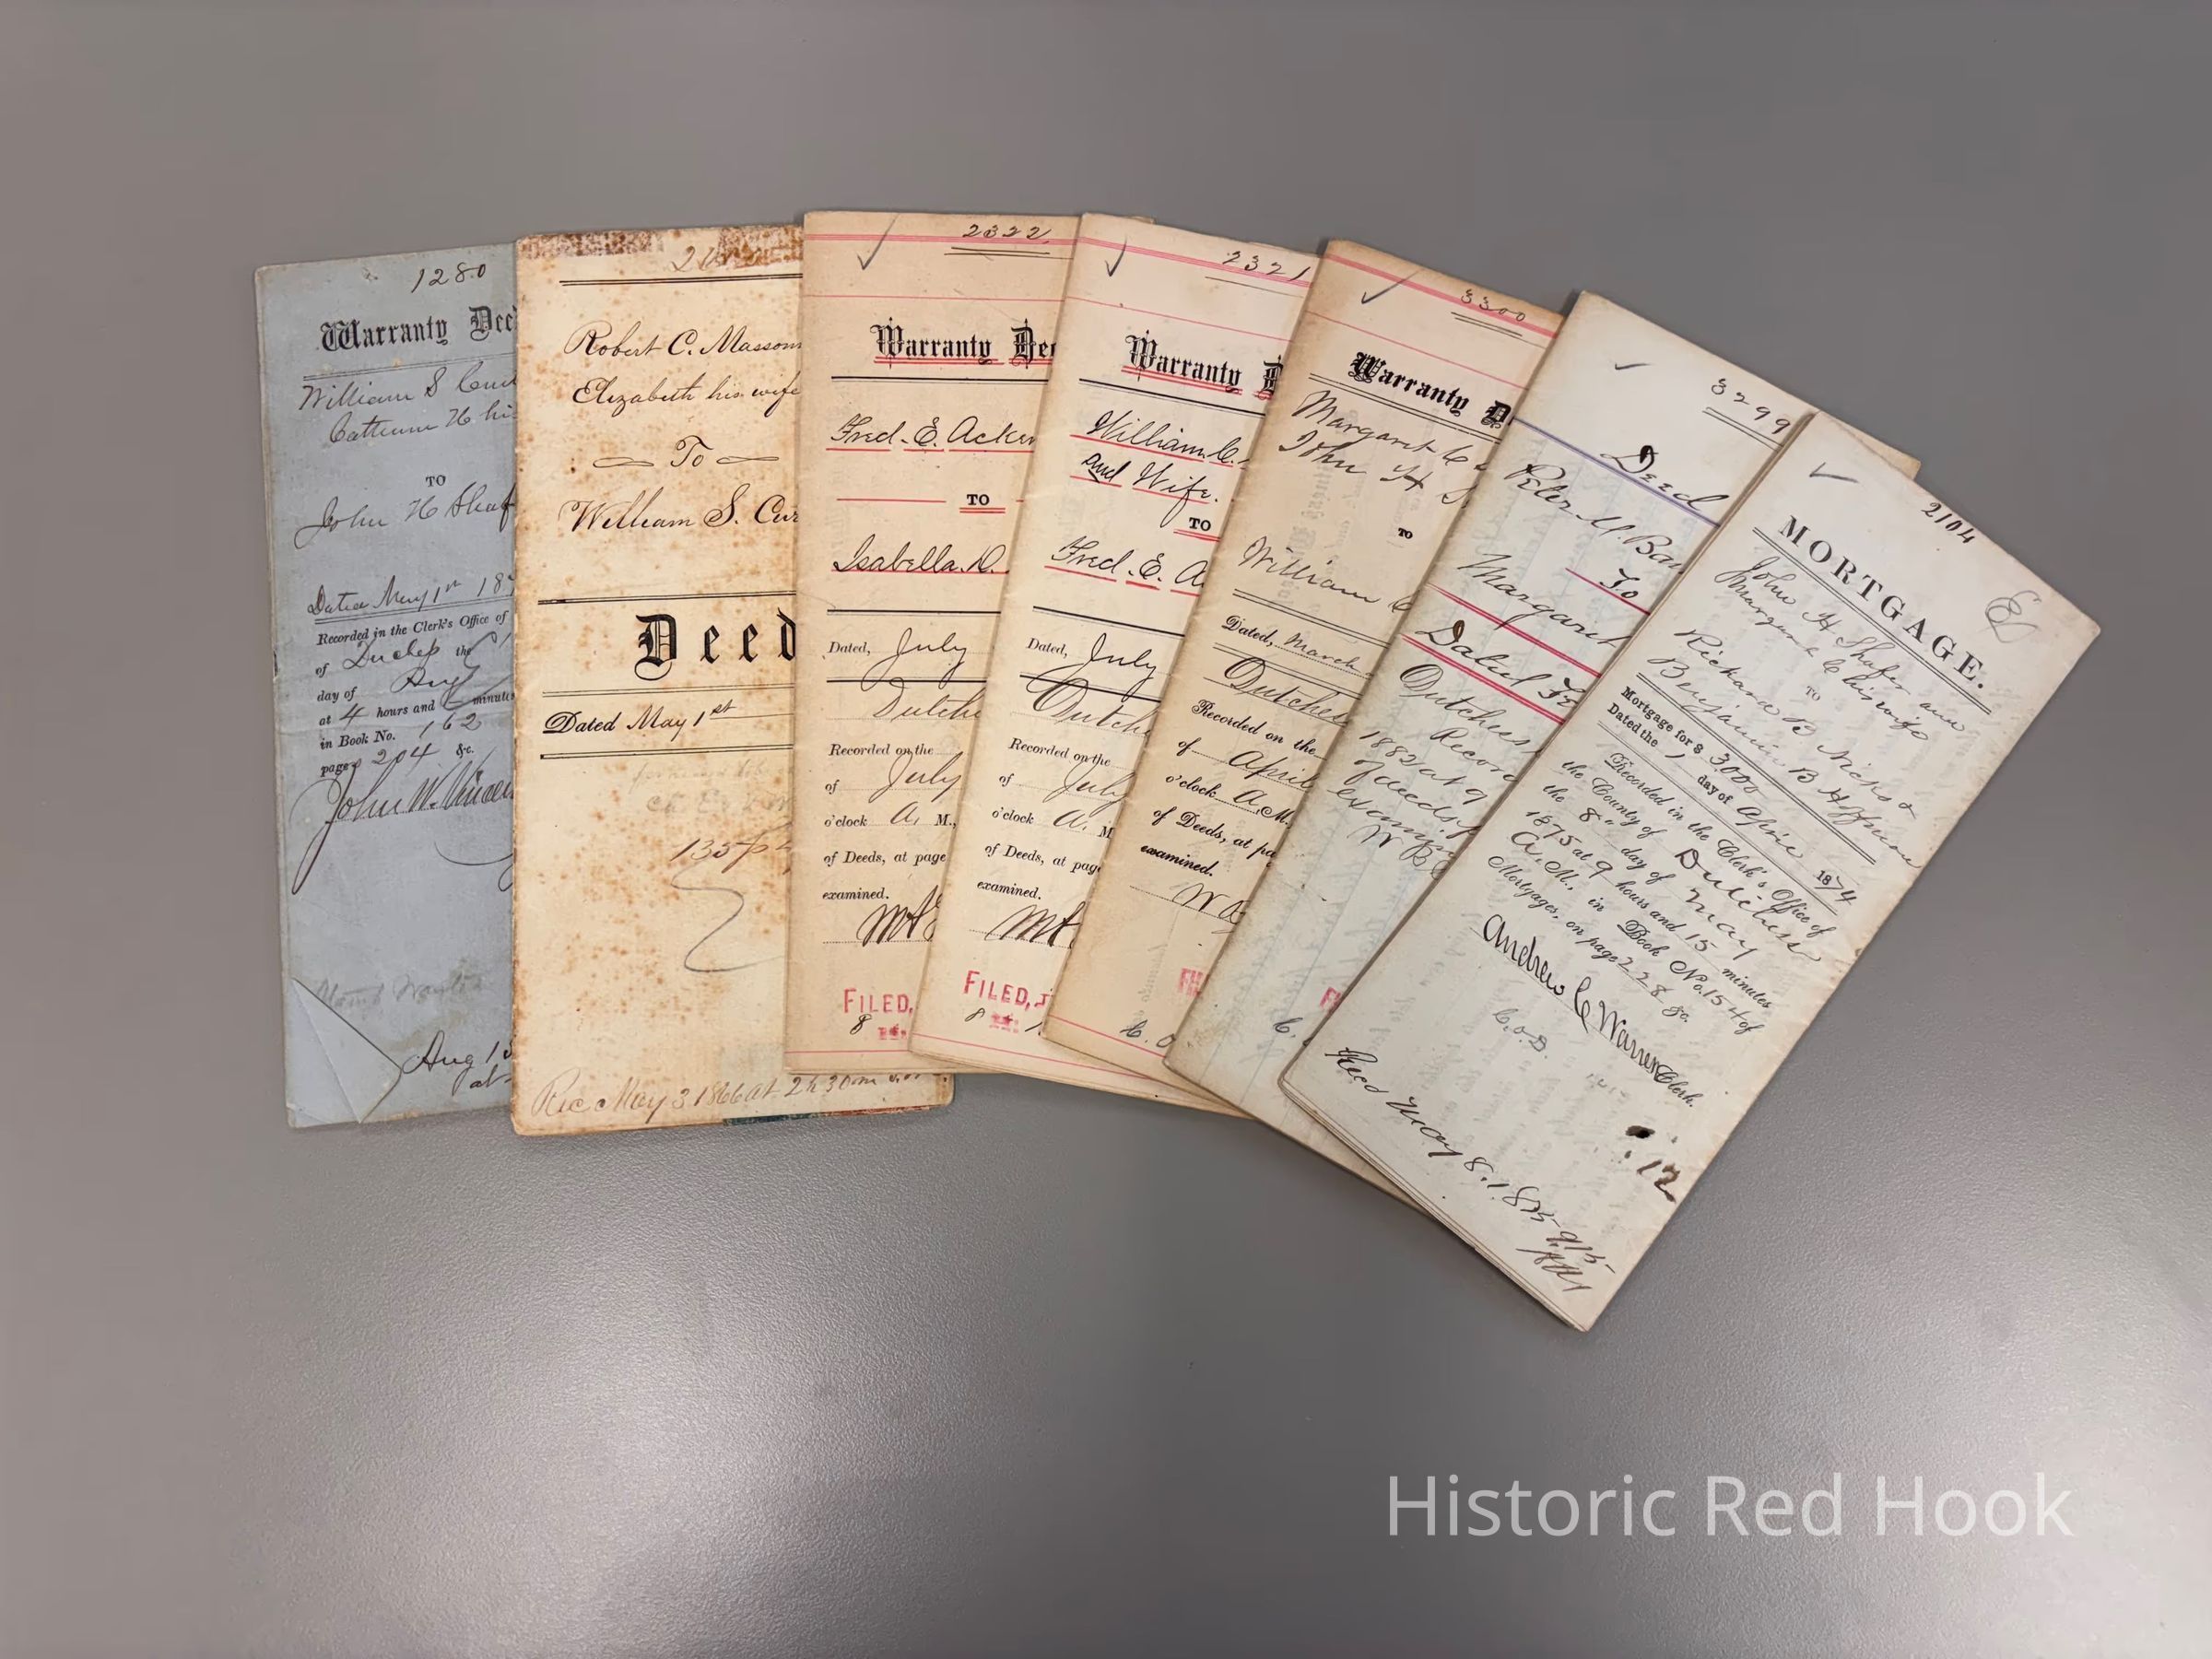 1280
Warranty Deed
William S
his
TO
John H Shaf
Dated May 1st 18
Recorded in the Clerk's Office of
of Duchess the
day of Aug
at 4 hours and minutes
in Book No. 162
page 204 &c.
John W. Vincen
Aug 1
at
Robert C. Masson
Elizabeth his wife
To
William S. Cur
Deed
Dated May 1st
Rec May 3 1866 at 2h 30m
2322
Warranty Dee
Fred. E. Acker
TO
Isabella. D.
Dated, July
Dutche
Recorded on the
of July
o'clock A. M.,
of Deeds, at page
examined.
FILED,
8
2321
Warranty D
William C.
and Wife.
TO
Fred. E. A
Dated, July
Dutch
Recorded on the
of July
o'clock A. M
of Deeds, at page
examined.
FILED, J
8
3300
Warranty D
Margaret C
John H S
TO
William C
Dated, March
Dutches
Recorded on the
of April
o'clock A.M.
of Deeds, at pa
examined.
FI
3299
Deed
Peter M. Bau
To
Margaret
Dated Fe
Dutchess
Recor
1882 at 9
of deeds,
examin
F
2104
MORTGAGE.
John H Shafer and
Margaret C his wife
TO
Richard B
Benjamin B Hoffman
Mortgage for $ 3000
Dated the 1 day of April 1874
Recorded in the Clerk's Office of
the County of Dutchess
the 8" day of May
1875 at 9 hours and 15 minutes
A.M., in Book No. 154 of
Mortgages, on page 228 &c.
Andrew C Warren Clerk.
Recd May 8. 1875 - 9.15
12
Historic Red Hook